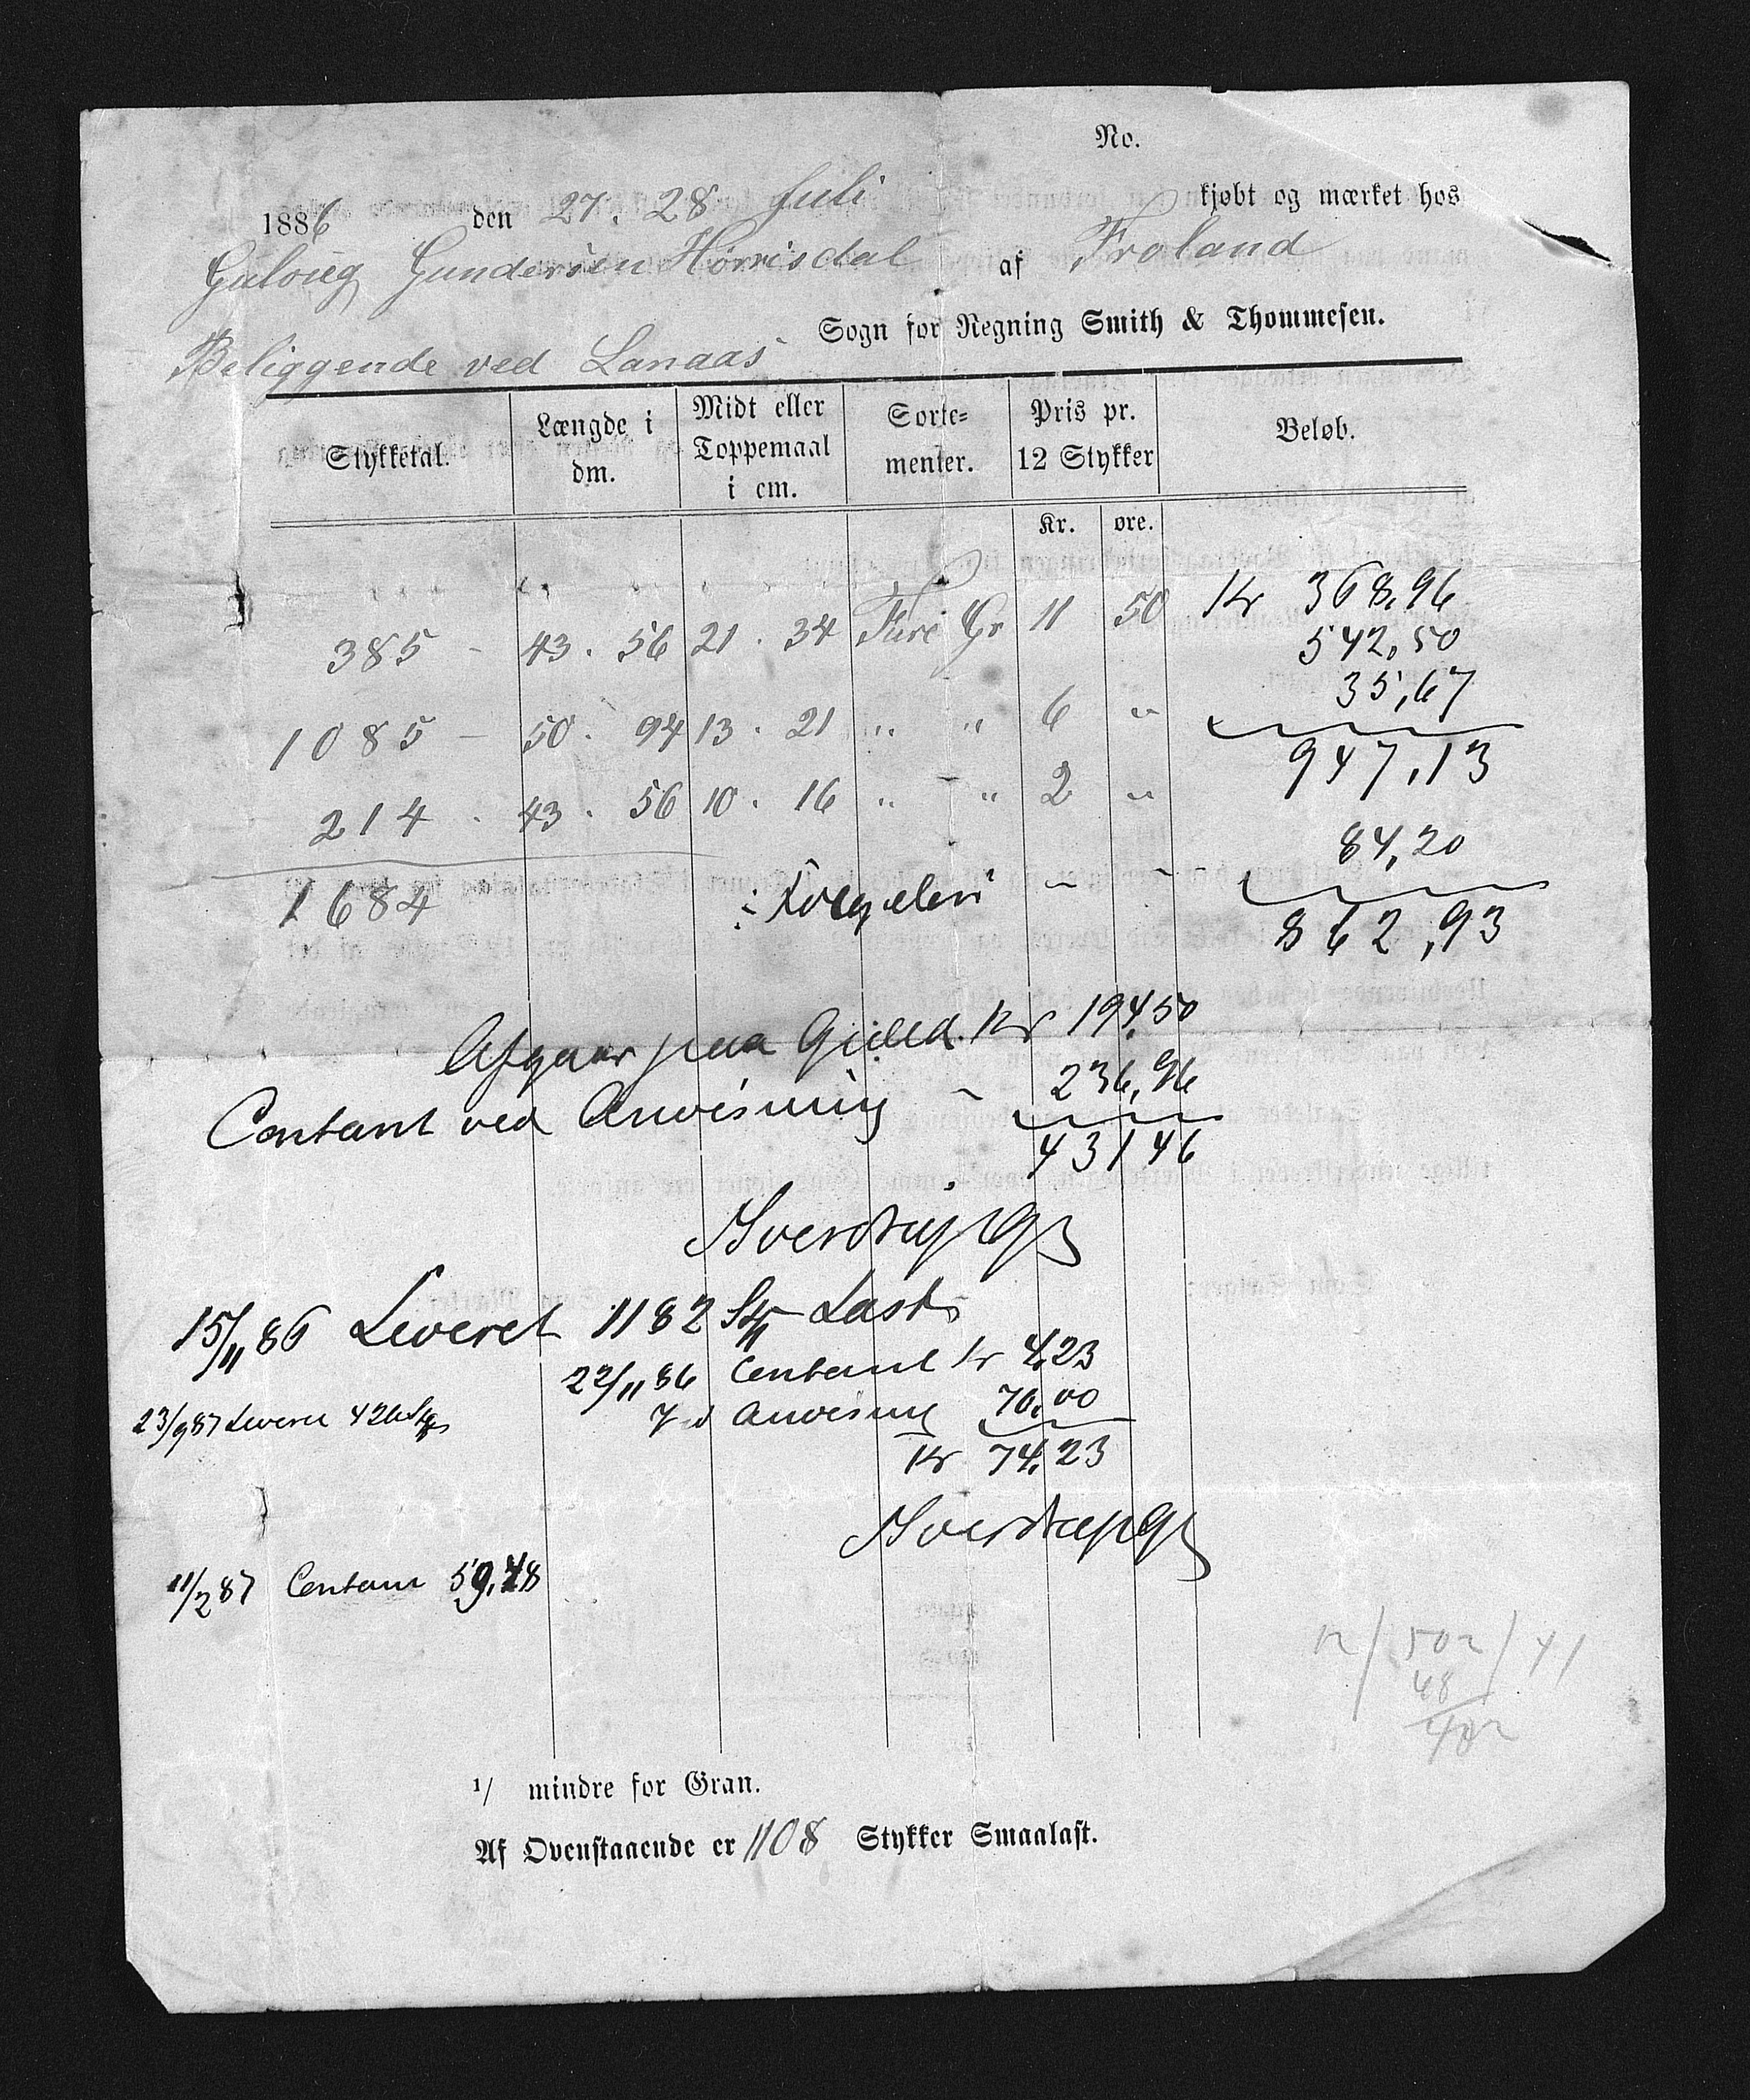 No.
1886 den 27. 28 Juli kjøbt og mærket hos
Guloug Gundersen Hørrisdal af Froland
Sogn for Regning Smith & Thommesen.
Beliggende ved Lanaas
Stykketal. Længde i dm. Midt eller Toppemaal i cm. Sorte-menter. Pris pr. 12 Stykker Beløb.
Kr. øre.
385 - 43 . 56 21 . 34 Furu Gr 11 50 Kr 368,96
542,50
35,67
1085 - 50 . 94 13 . 21 " " 6 " 947,13
214 . 43 . 56 10 . 16 " " 2 "
84,20
1684 862,93
Afgaar paa Gjæld. Kr 194,50
Contant ved Anvisning - 236,96
431 46
15/11 86 Leveret 1182 Stk Last
22/11 86 Contant Kr 4,23
23/9 87 Leveret 426 Stk
Anvisning 70,00
Kr 74,23
11/2 87 Contant 59,48
12/502/41
48
1/ mindre for Gran.
Af Ovenstaaende er 1108 Stykker Smaalast.